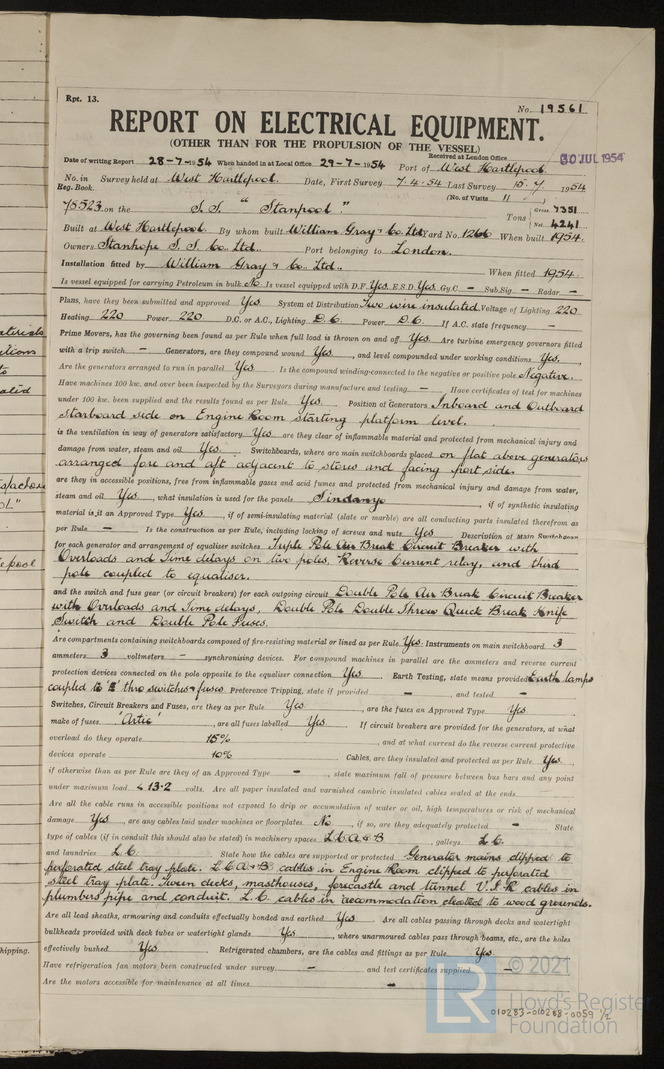 Rpt. 13.
No. 19561
REPORT ON ELECTRICAL EQUIPMENT.
(OTHER THAN FOR THE PROPULSION OF THE VESSEL)
Date of writing Report 28-7-1954 When handed in at Local Office 29-7-1954 Received at London Office 30 JUL 1954
Port of West Hartlepool.
No. in Survey held at West Hartlepool. Date, First Survey 7-4-54 Last Survey 15.7 1954
Reg. Book. (No. of Visits 11)
78523 on the S.S. "Stanpool." Tons Gross 7351
Net 4241
Built at West Hartlepool. By whom built William Gray & Co. Ltd. Yard No. 1266 When built 1954.
Owners Stanhope S.S. Co. Ltd. Port belonging to London.
Installation fitted by William Gray & Co. Ltd. When fitted 1954.
Is vessel equipped for carrying Petroleum in bulk No Is vessel equipped with D.F. Yes. E.S.D. Yes. Gy.C. - Sub.Sig. - Radar -
Plans, have they been submitted and approved Yes System of Distribution Two wire insulated. Voltage of Lighting 220
Heating 220 Power 220 D.C. or A.C., Lighting D.C. Power D.C. If A.C. state frequency -
Prime Movers, has the governing been found as per Rule when full load is thrown on and off Yes. Are turbine emergency governors fitted
with a trip switch. - Generators, are they compound wound Yes, and level compounded under working conditions Yes.
Are the generators arranged to run in parallel Yes Is the compound winding connected to the negative or positive pole Negative.
Have machines 100 kw. and over been inspected by the Surveyors during manufacture and testing - Have certificates of test for machines
under 100 kw. been supplied and the results found as per Rule Yes. Position of Generators Inboard and Outboard
Starboard side on Engine Room starting platform level.
is the ventilation in way of generators satisfactory Yes are they clear of inflammable material and protected from mechanical injury and
damage from water, steam and oil Yes. Switchboards, where are main switchboards placed on flat above generators
arranged fore and aft adjacent to stores and facing port side.
are they in accessible positions, free from inflammable gases and acid fumes and protected from mechanical injury and damage from water,
steam and oil Yes, what insulation is used for the panels Sindanyo, if of synthetic insulating
material is it an Approved Type Yes, if of semi-insulating material (slate or marble) are all conducting parts insulated therefrom as
per Rule - Is the construction as per Rule, including locking of screws and nuts Yes Description of Main Switchgear
for each generator and arrangement of equaliser switches Triple Pole Air Break Circuit Breaker with
Overloads and Time delays on two poles, Reverse Current relay, and third
pole coupled to equaliser.
and the switch and fuse gear (or circuit breakers) for each outgoing circuit Double Pole Air Break Circuit Breaker
with Overloads and Time delays, Double Pole Double Throw Quick Break Knife
Switch and Double Pole Fuses.
Are compartments containing switchboards composed of fire-resisting material or lined as per Rule Yes. Instruments on main switchboard 3
ammeters 3 voltmeters - synchronising devices. For compound machines in parallel are the ammeters and reverse current
protection devices connected on the pole opposite to the equaliser connection Yes Earth Testing, state means provided Earth lamps
coupled to "E" thro switches & fuses Preference Tripping, state if provided -, and tested -
Switches, Circuit Breakers and Fuses, are they as per Rule Yes, are the fuses an Approved Type Yes
make of fuses 'Artic', are all fuses labelled Yes If circuit breakers are provided for the generators, at what
overload do they operate 15%, and at what current do the reverse current protective
devices operate 10% Cables, are they insulated and protected as per Rule Yes
if otherwise than as per Rule are they of an Approved Type -, state maximum fall of pressure between bus bars and any point
under maximum load < 13.2 volts. Are all paper insulated and varnished cambric insulated cables sealed at the ends
Are all the cable runs in accessible positions not exposed to drip or accumulation of water or oil, high temperatures or risk of mechanical
damage Yes, are any cables laid under machines or floorplates No, if so, are they adequately protected - State
type of cables (if in conduit this should also be stated) in machinery spaces L.C.A & B, galleys L.C.
and laundries L.C. State how the cables are supported or protected Generator mains clipped to
perforated steel tray plate. L.C.A & B cables in Engine Room clipped to perforated
steel tray plate. Tween decks, masthouses, forecastle and tunnel V.I.R cables in
plumbers pipe and conduit. L.C. cables in accommodation cleated to wood grounds.
Are all lead sheaths, armouring and conduits effectually bonded and earthed Yes Are all cables passing through decks and watertight
bulkheads provided with deck tubes or watertight glands Yes, where unarmoured cables pass through beams, etc., are the holes
effectively bushed Yes Refrigerated chambers, are the cables and fittings as per Rule Yes
Have refrigeration fan motors been constructed under survey - and test certificates supplied -
Are the motors accessible for maintenance at all times -
© 2021
LR
Lloyd's Register
Foundation
010283-010288-0059 1/2